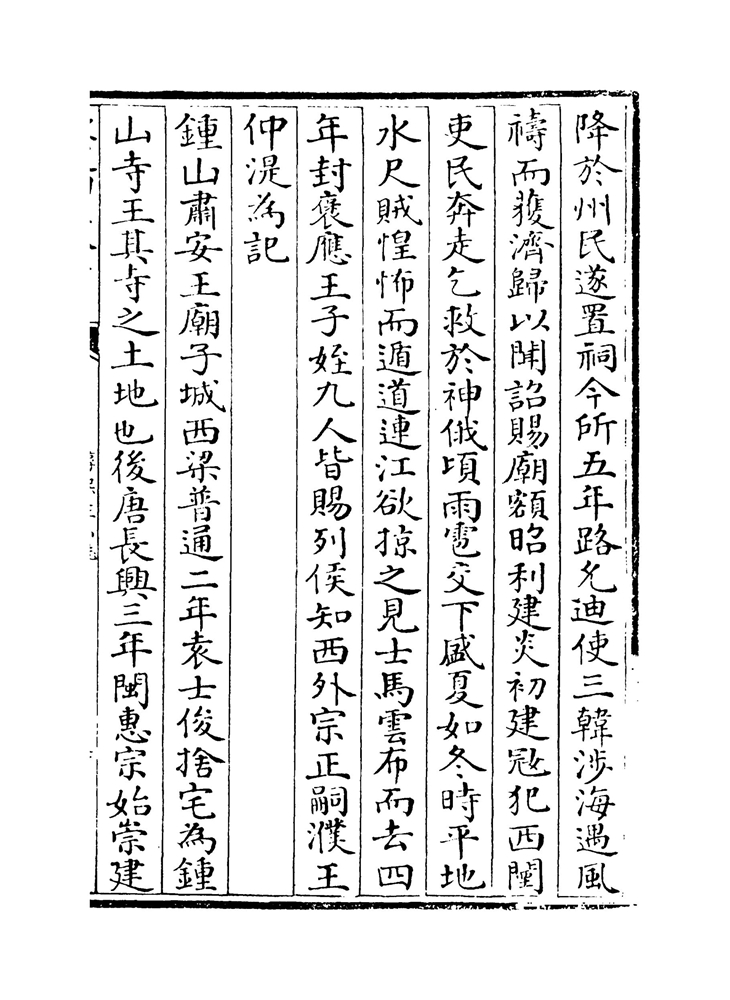 降於州民遂置祠今所五年路允迪使三韓涉海遇風
禱而獲濟歸以聞詔賜廟額昭利建炎初建冦犯西閩
吏民奔走乞救於神俄頃雨雹交下盛夏如冬時平地
水尺賊惶怖而遁道連江欲掠之見士馬雲布而去四
年封褒應王子姪九人皆賜列侯知西外宗正嗣濮王
仲湜為記
鍾山肅安王廟子城西梁普通二年袁士俊捨宅為鍾
山寺王其寺之土地也後唐長興三年閩惠宗始崇建